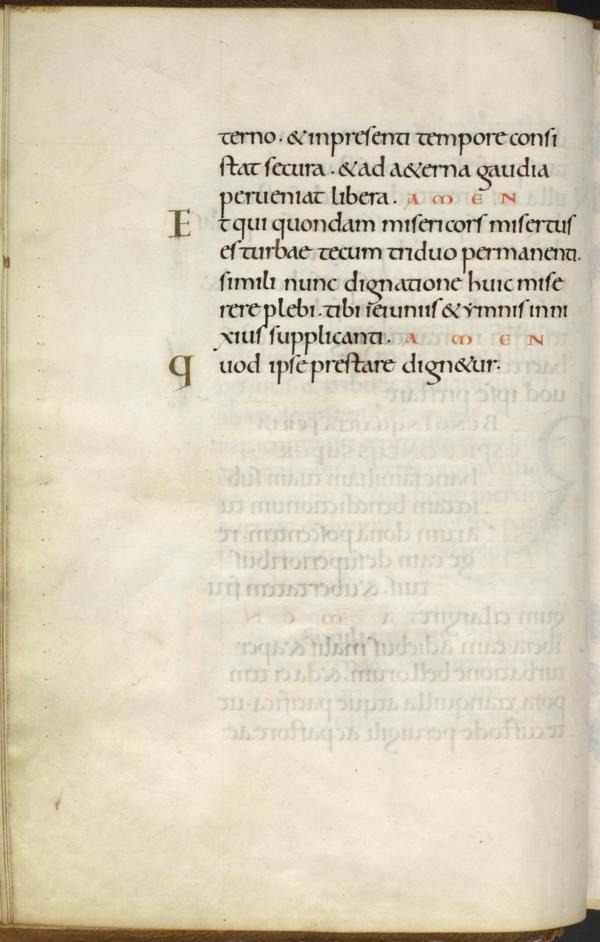 terno. & inpresenti tempore consi
stat secura. & ad a&erna gaudia
perueniat libera. AMEN
Et qui quondam misericors misertus
es turbae tecum triduo permanenti.
simili nunc dignatione huic mise
rere plebi. tibi ieiuniis & ymnis inni
xius supplicanti. AMEN
quod ipse prestare dign&ur.